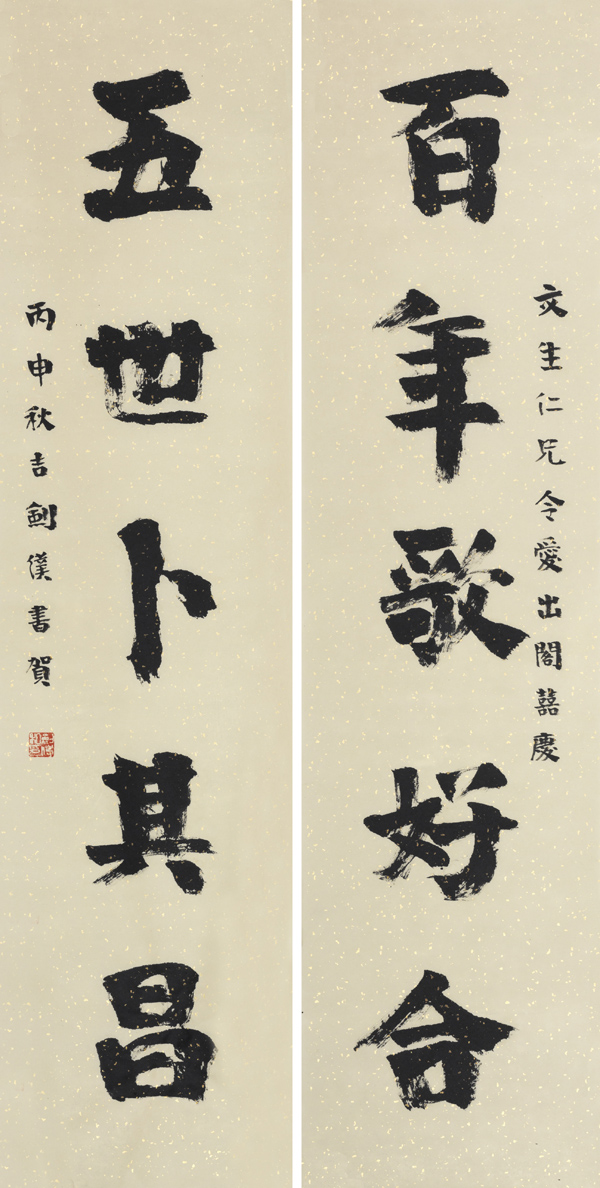 文生仁兄令愛出閣囍慶
百年歌好合
五世卜其昌
丙申秋吉劍漢書賀